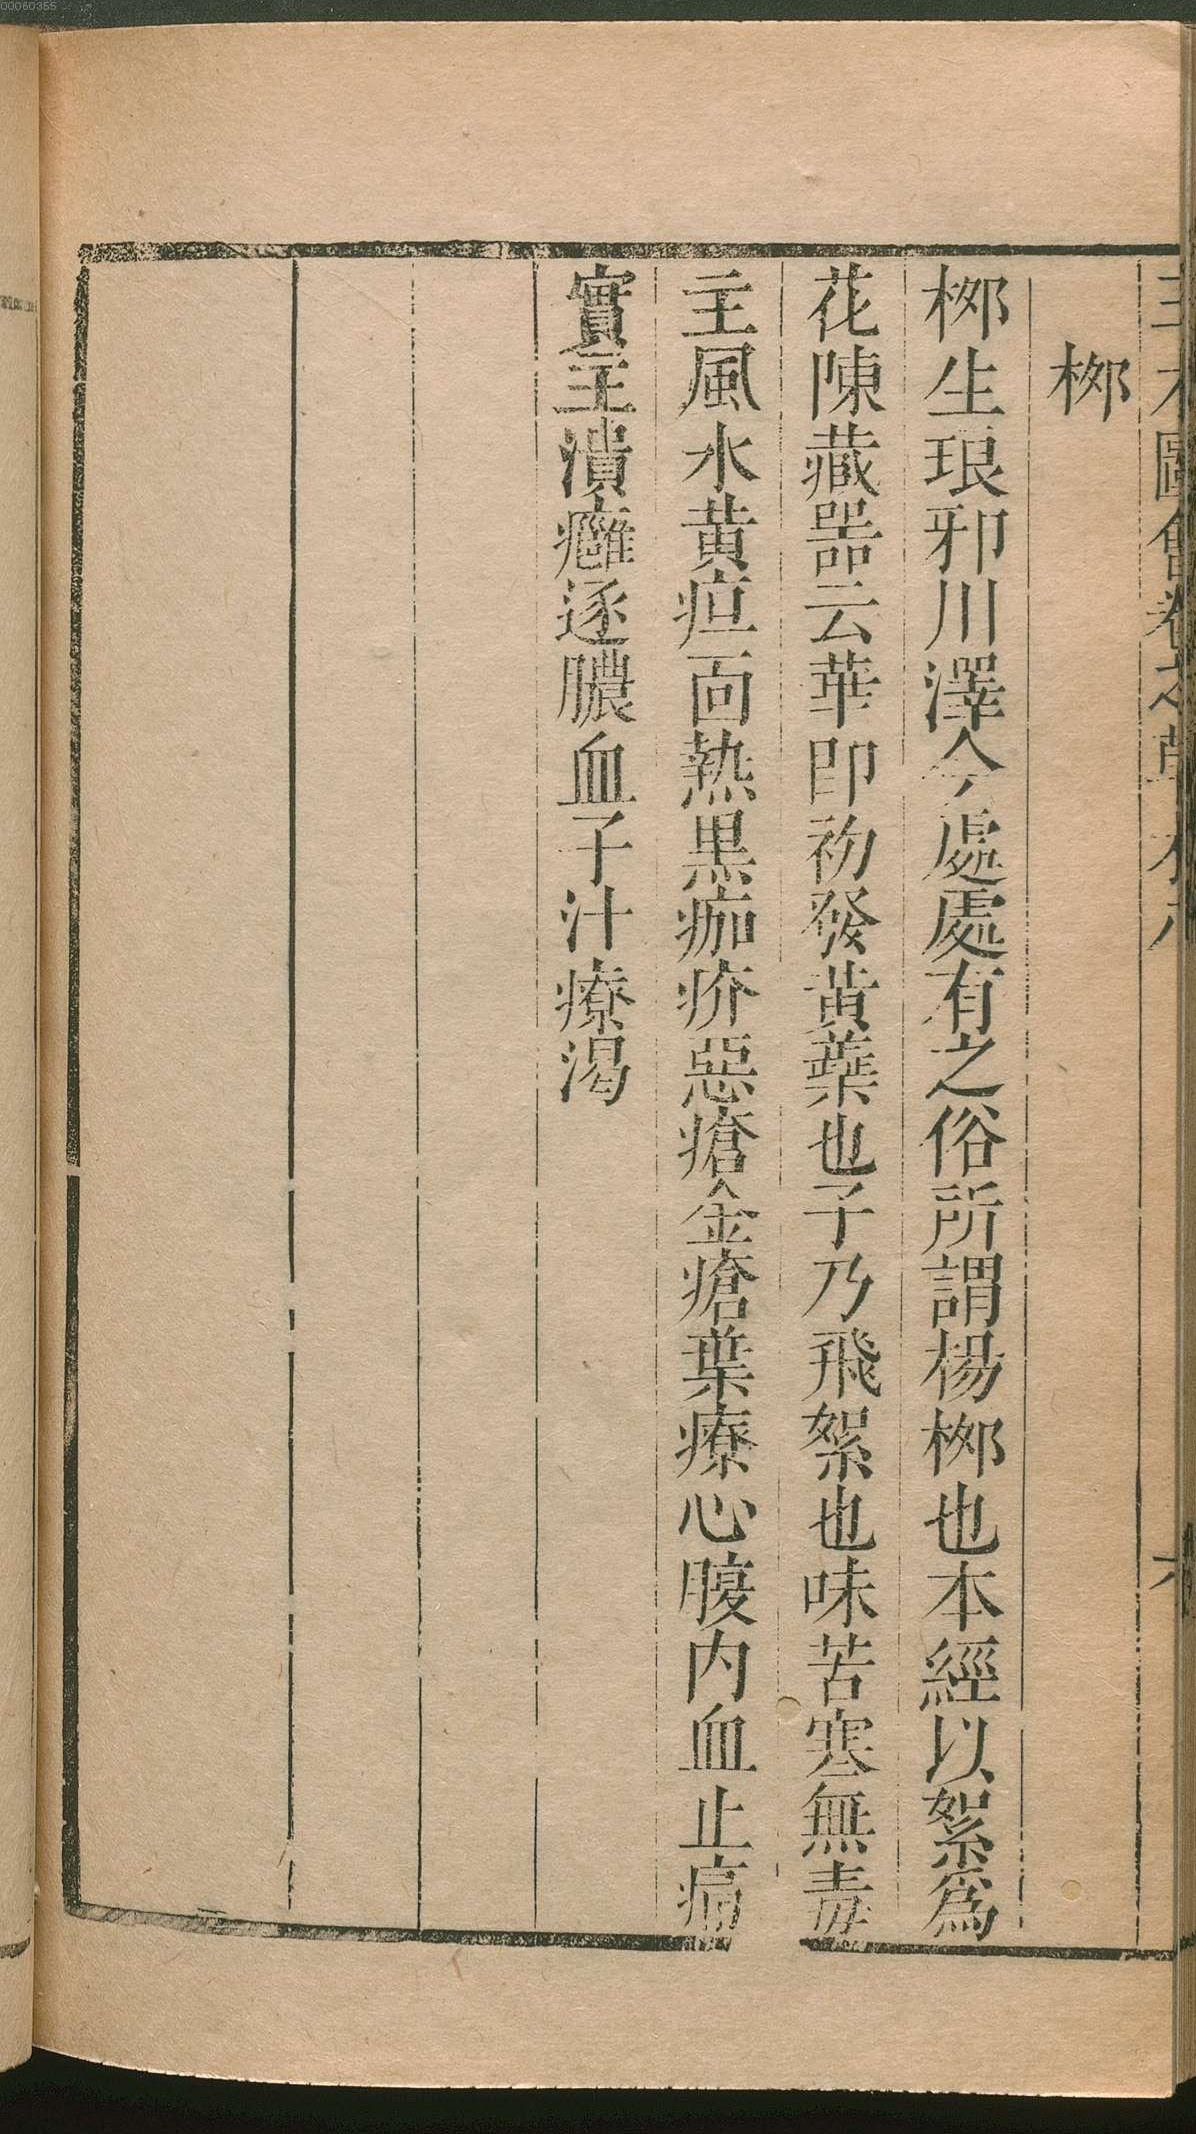 00060355
栁
栁生琅邪川澤今處處有之俗所謂楊栁也本經以絮爲
花陳藏噐云華即初發黄蘂也子乃飛絮也味苦寒無毒
主風水黄疸面熱黒痂疥惡瘡金瘡葉療心腹内血止痛
實主潰癰逐膿血子汁療渴